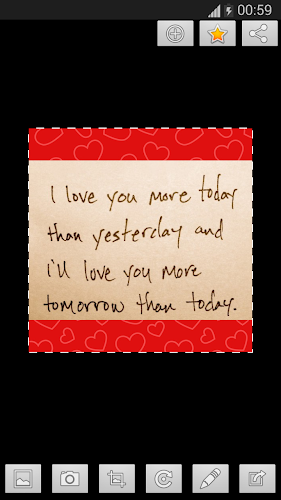 00:59
I love you more today
than yesterday and
i'll love you more
tomorrow than today.